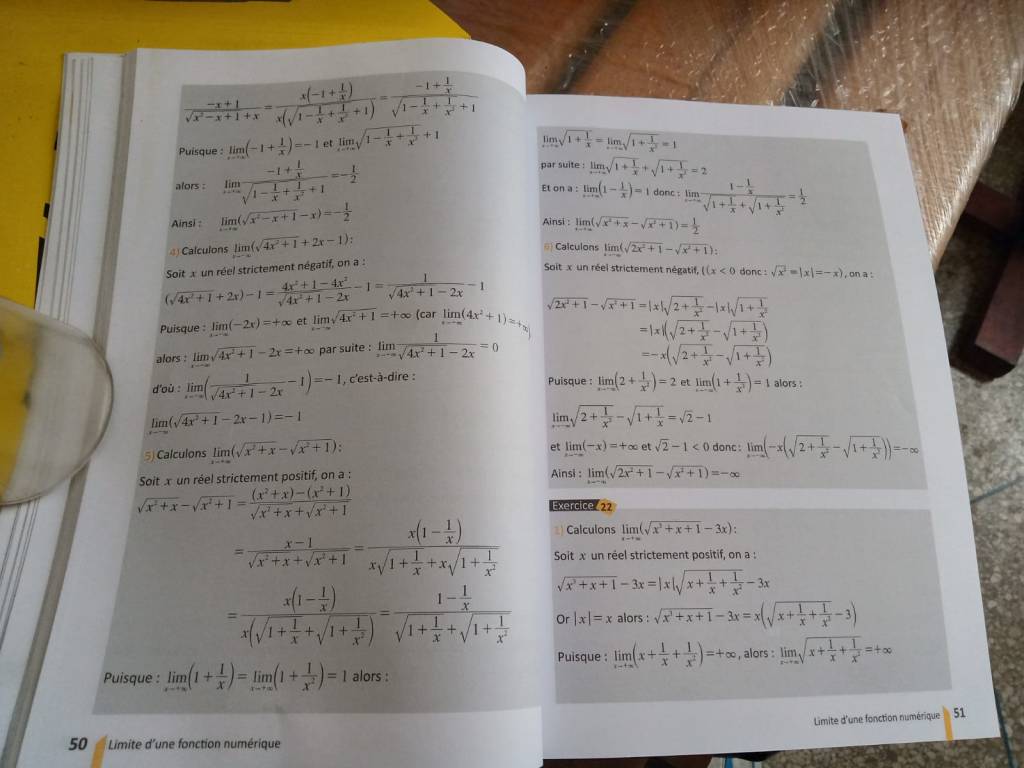 (-x+1)/(√(x²-x+1)+x) = x(-1+1/x)/(x(√(1-1/x+1/x²)+1)) = (-1+1/x)/(√(1-1/x+1/x²)+1)
Puisque : lim_{x→+∞}(-1+1/x)=-1 et lim_{x→+∞}√(1-1/x+1/x²)+1
alors : lim_{x→+∞} (-1+1/x)/(√(1-1/x+1/x²)+1) = -1/2
Ainsi : lim_{x→+∞}(√(x²-x+1)-x)=-1/2
4) Calculons lim_{x→-∞}(√(4x²+1)+2x-1):
Soit x un réel strictement négatif, on a :
(√(4x²+1)+2x)-1 = (4x²+1-4x²)/(√(4x²+1)-2x) -1 = 1/(√(4x²+1)-2x) -1
Puisque : lim_{x→-∞}(-2x)=+∞ et lim_{x→-∞}√(4x²+1)=+∞ (car lim_{x→-∞}(4x²+1)=+∞)
alors : lim_{x→-∞}√(4x²+1)-2x=+∞ par suite : lim_{x→-∞} 1/(√(4x²+1)-2x)=0
d'où : lim_{x→-∞}(1/(√(4x²+1)-2x) -1)=-1, c'est-à-dire :
lim_{x→-∞}(√(4x²+1)-2x-1)=-1
5) Calculons lim_{x→+∞}(√(x²+x)-√(x²+1)):
Soit x un réel strictement positif, on a :
√(x²+x)-√(x²+1) = ((x²+x)-(x²+1))/(√(x²+x)+√(x²+1))
= (x-1)/(√(x²+x)+√(x²+1)) = x(1-1/x)/(x√(1+1/x)+x√(1+1/x²))
= x(1-1/x)/(x(√(1+1/x)+√(1+1/x²))) = (1-1/x)/(√(1+1/x)+√(1+1/x²))
Puisque : lim_{x→+∞}(1+1/x)=lim_{x→+∞}(1+1/x²)=1 alors :
50 Limite d'une fonction numérique
lim_{x→+∞}√(1+1/x)=lim_{x→+∞}√(1+1/x²)=1
par suite : lim_{x→+∞}√(1+1/x)+√(1+1/x²)=2
Et on a : lim_{x→+∞}(1-1/x)=1 donc : lim_{x→+∞} (1-1/x)/(√(1+1/x)+√(1+1/x²))=1/2
Ainsi : lim_{x→+∞}(√(x²+x)-√(x²+1))=1/2
6) Calculons lim_{x→-∞}(√(2x²+1)-√(x²+1)):
Soit x un réel strictement négatif, ((x<0 donc : √x²=|x|=-x), on a :
√(2x²+1)-√(x²+1)=|x|√(2+1/x²)-|x|√(1+1/x²)
=|x|(√(2+1/x²)-√(1+1/x²))
=-x(√(2+1/x²)-√(1+1/x²))
Puisque : lim_{x→-∞}(2+1/x²)=2 et lim_{x→-∞}(1+1/x²)=1 alors :
lim_{x→-∞}√(2+1/x²)-√(1+1/x²)=√2-1
et lim_{x→-∞}(-x)=+∞ et √2-1<0 donc : lim_{x→-∞}(-x(√(2+1/x²)-√(1+1/x²)))=-∞
Ainsi : lim_{x→-∞}(√(2x²+1)-√(x²+1))=-∞
Exercice 22
1) Calculons lim_{x→+∞}(√(x³+x+1)-3x):
Soit x un réel strictement positif, on a :
√(x³+x+1)-3x=|x|√(x+1/x+1/x²)-3x
Or |x|=x alors : √(x³+x+1)-3x=x(√(x+1/x+1/x²)-3)
Puisque : lim_{x→+∞}(x+1/x+1/x²)=+∞, alors : lim_{x→+∞}√(x+1/x+1/x²)=+∞
Limite d'une fonction numérique 51